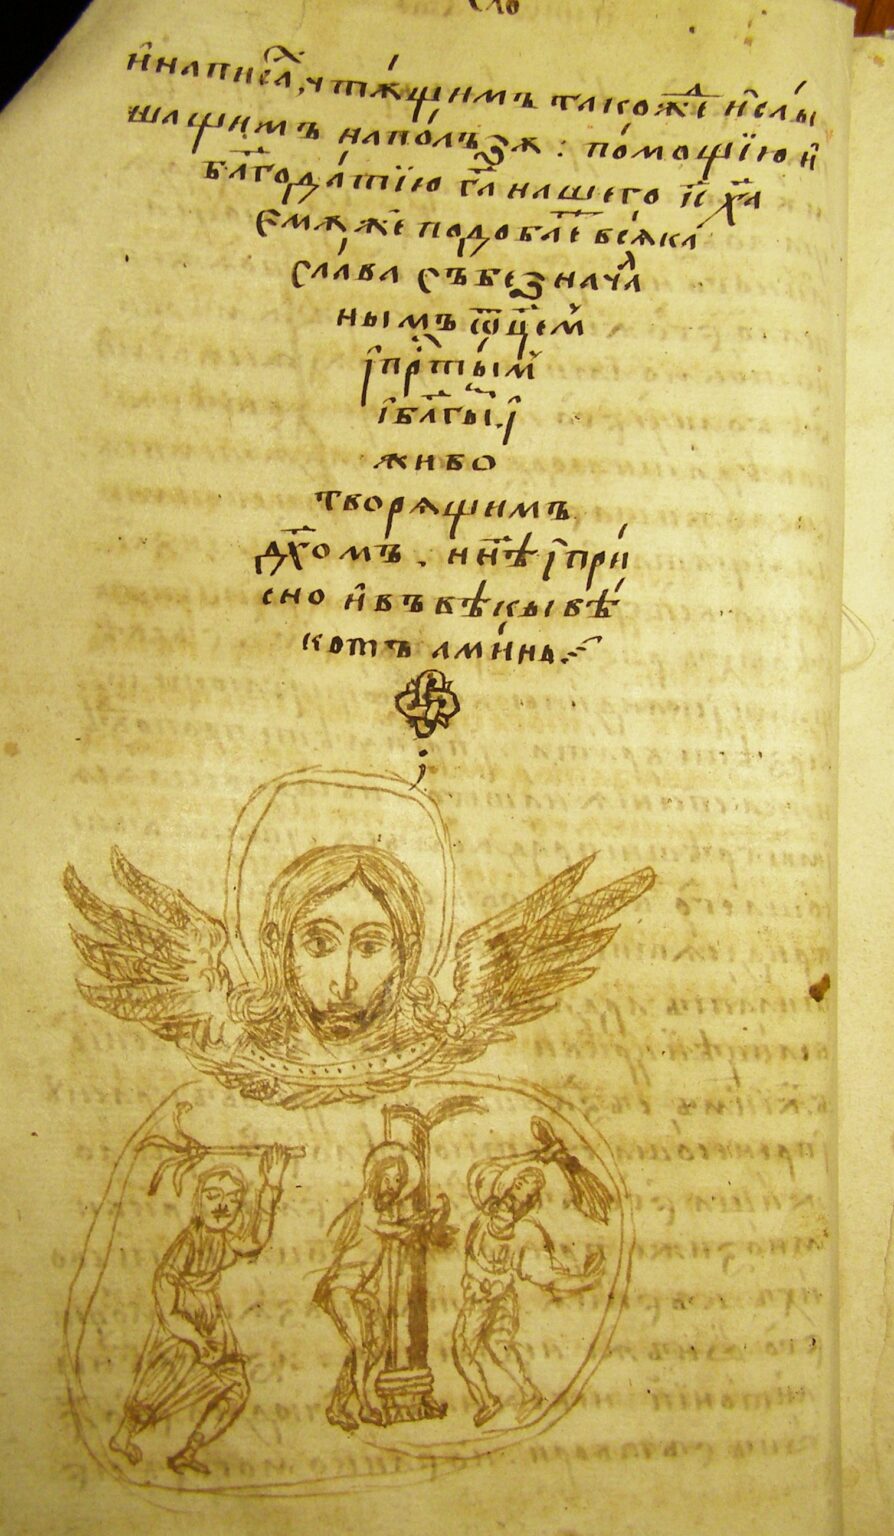 и҆написа́, чтѫщимъ такоже и҆слы́
шащимъ напо́лъꙁѫ : по́мощїю и҆
бл҃года́тїю г҃а нашего і҃с х҃а
Ємѫже подобае всѧка
сла́ва събеꙁнача́л
нымъ ѿц҃ем
і҆пр҃ты́м
і҆бл҃гы́. і҆
живо
творѧщимъ
дх҃омъ. нн҃ѣ і҆при́
сно и҆въвѣкы вѣ́
комъ ами́нь